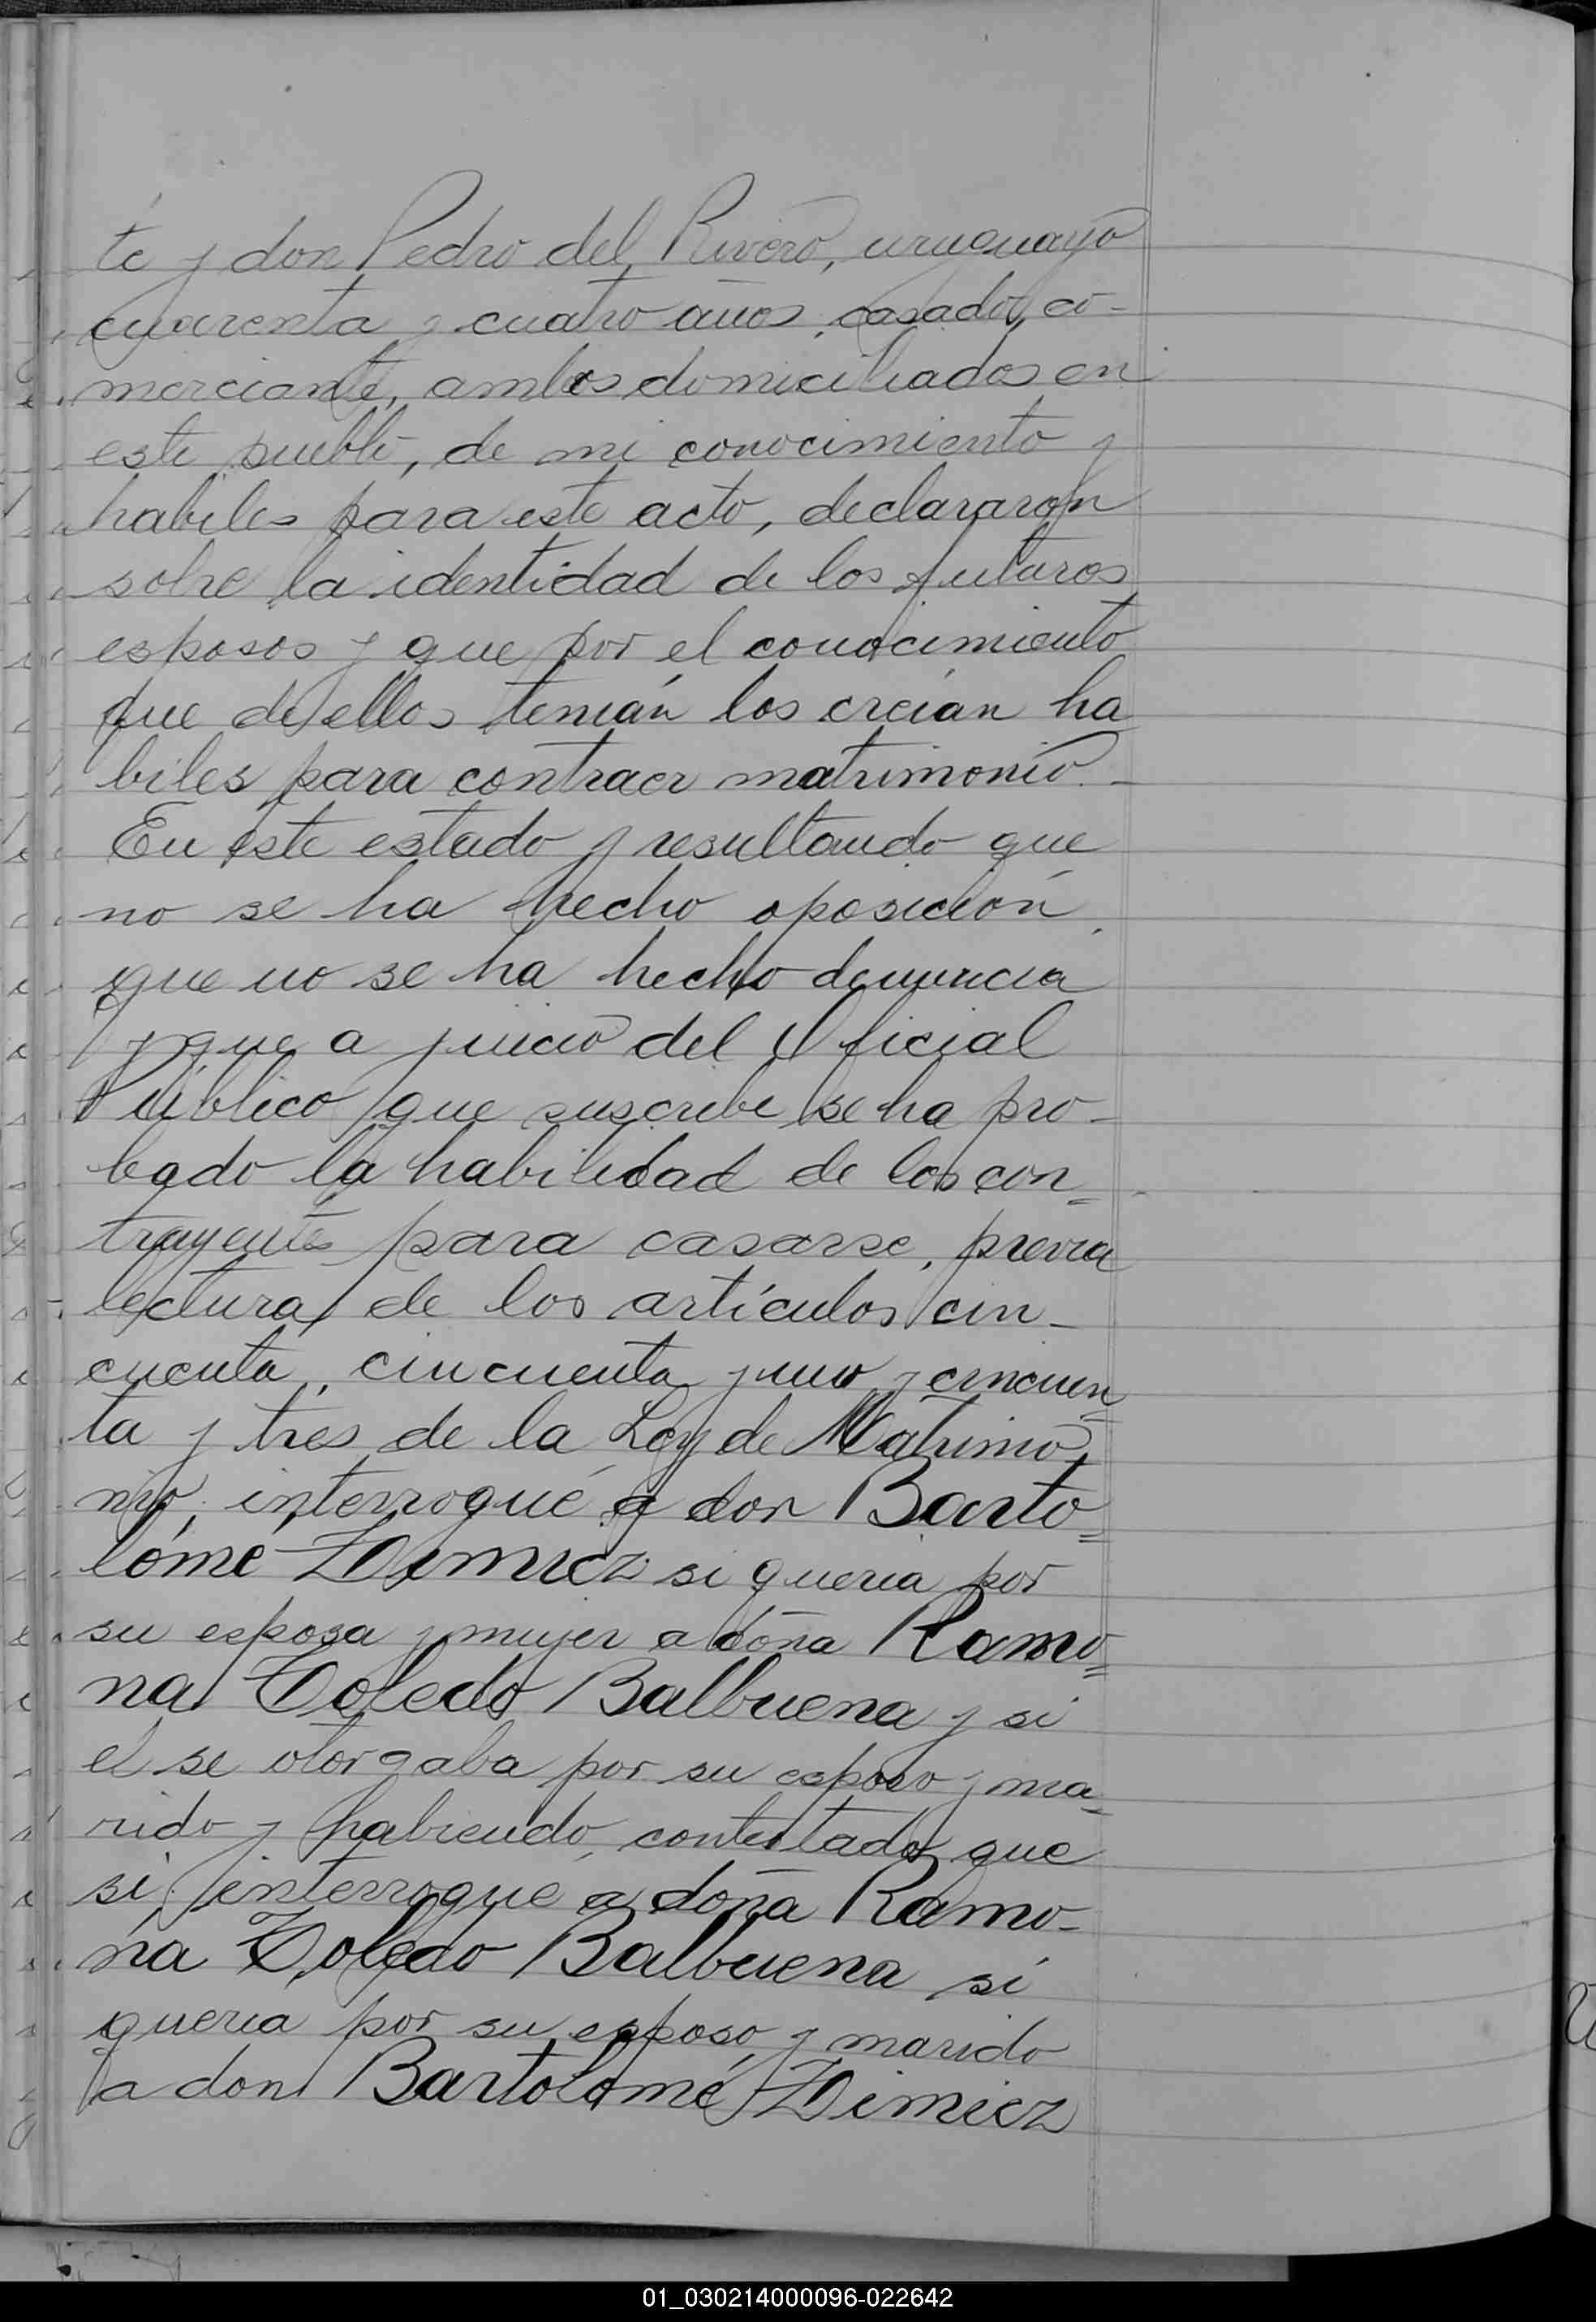 te y don Pedro del Rivero, uruguayo
cuarenta y cuatro años, casado, co-
merciante, ambos domiciliados en
este pueblo, de mi conocimiento y
habiles para este acto, declararon
sobre la identidad de los futuros
esposos y que por el conocimiento
que de ellos tenían los creían ha
biles para contraer matrimonio.-
En este estado y resultando que
no se ha hecho oposición,
que no se ha hecho denuncia
y que a juicio del Oficial
Público que suscribe se ha pro-
bado la habilidad de los con=
trayentes para casarse, previa
lectura de los artículos cin-
cuenta, cincuenta y uno y cincuen
ta y tres de la Ley de Matrimo-
nio, interrogué a don Barto=
lomé Dimiez si queria por
su esposa y mujer a doña Ramo=
na Toledo Balbuena y si
el se otorgaba por su esposo y ma-
rido y habiendo contestado que
si, interrogué a doña Ramo-
na Toledo Balbuena si
queria por su esposo y marido
a don Bartolomé Dimiez
01_030214000096-022642